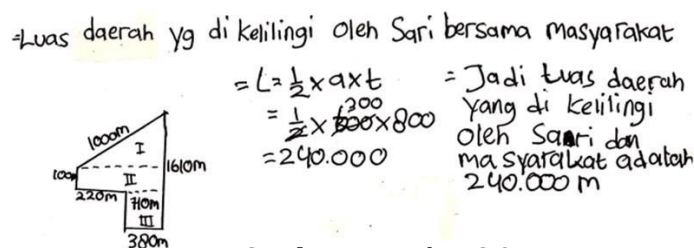 =Luas daerah yg di kelilingi oleh Sari bersama masyarakat
= L = 1/2 x a x t
300
= 1/2 x 600 x 800
= 240.000
= Jadi luas daerah
yang di kelilingi
oleh Sari dan
masyarakat adalah
240.000 m
1000m
I
100m
II
1610m
220m
710m
III
380m